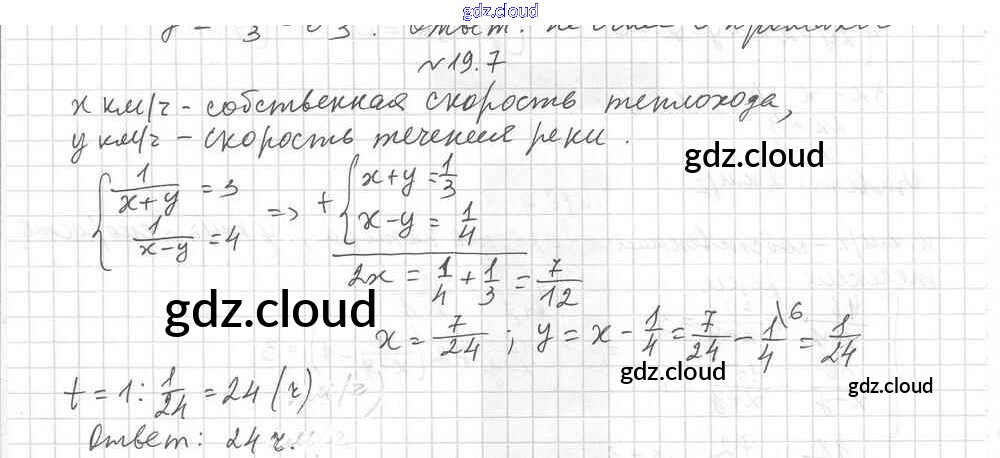 gdz.cloud
у = 3 3 . Ответ:
№19.7
х км/ч - собственная скорость теплохода,
у км/ч - скорость течения реки.
gdz.cloud
{ 1/(x+y) = 3 => + { x+y = 1/3
1/(x-y) = 4 x-y = 1/4
2x = 1/4 + 1/3 = 7/12
gdz.cloud
x = 7/24 ; y = x - 1/4 = 7/24 - 1/4 \6 = 1/24
gdz.cloud
gdz.cloud
t = 1 : 1/24 = 24 (ч)
Ответ: 24 ч.